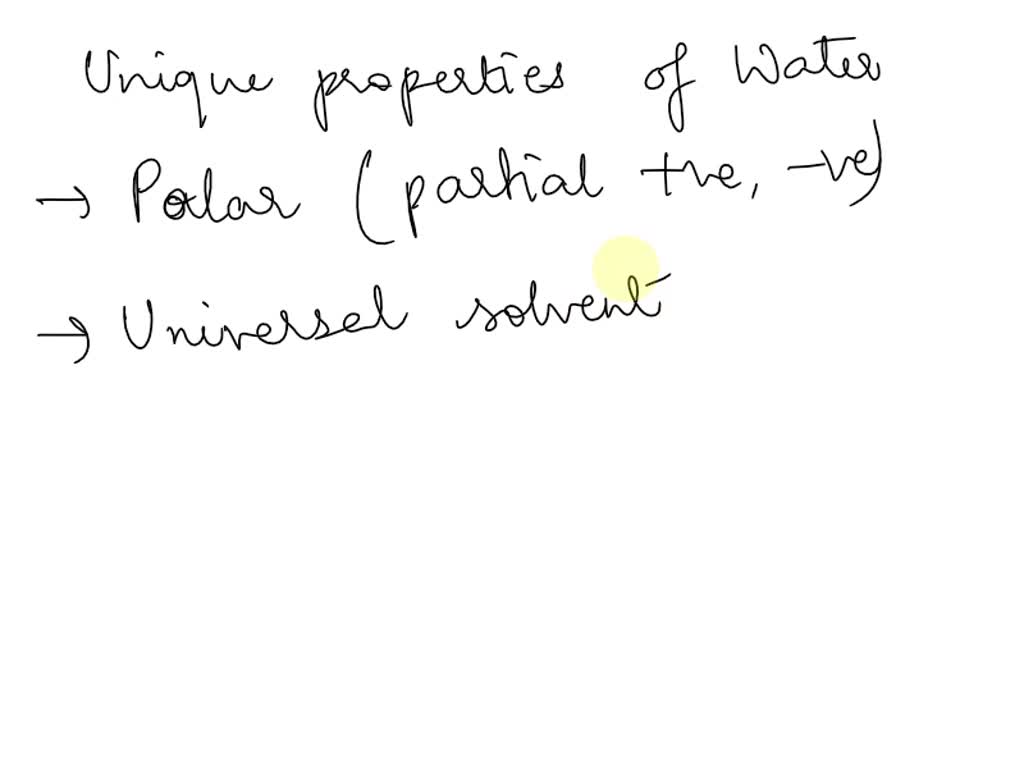 Unique properties of Water
→ Polar (partial +ve, -ve)
→ Universal solvent